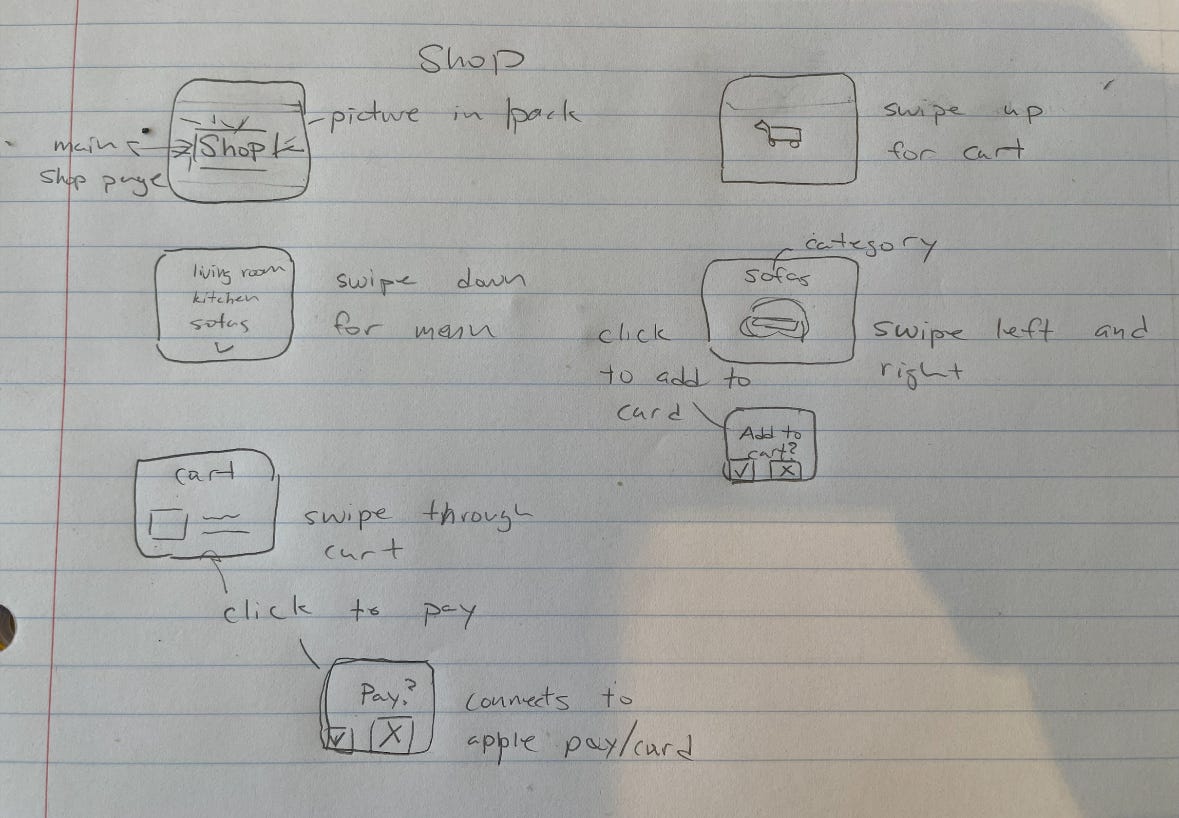 Shop
picture in back
main
shop page
Shop
swipe up
for cart
living room
kitchen
sofas
swipe down
for menu
category
sofas
click
to add to
card
swipe left and
right
Add to
cart?
✓ X
cart
swipe through
cart
click to pay
Pay?
✓ X
connects to
apple pay/card